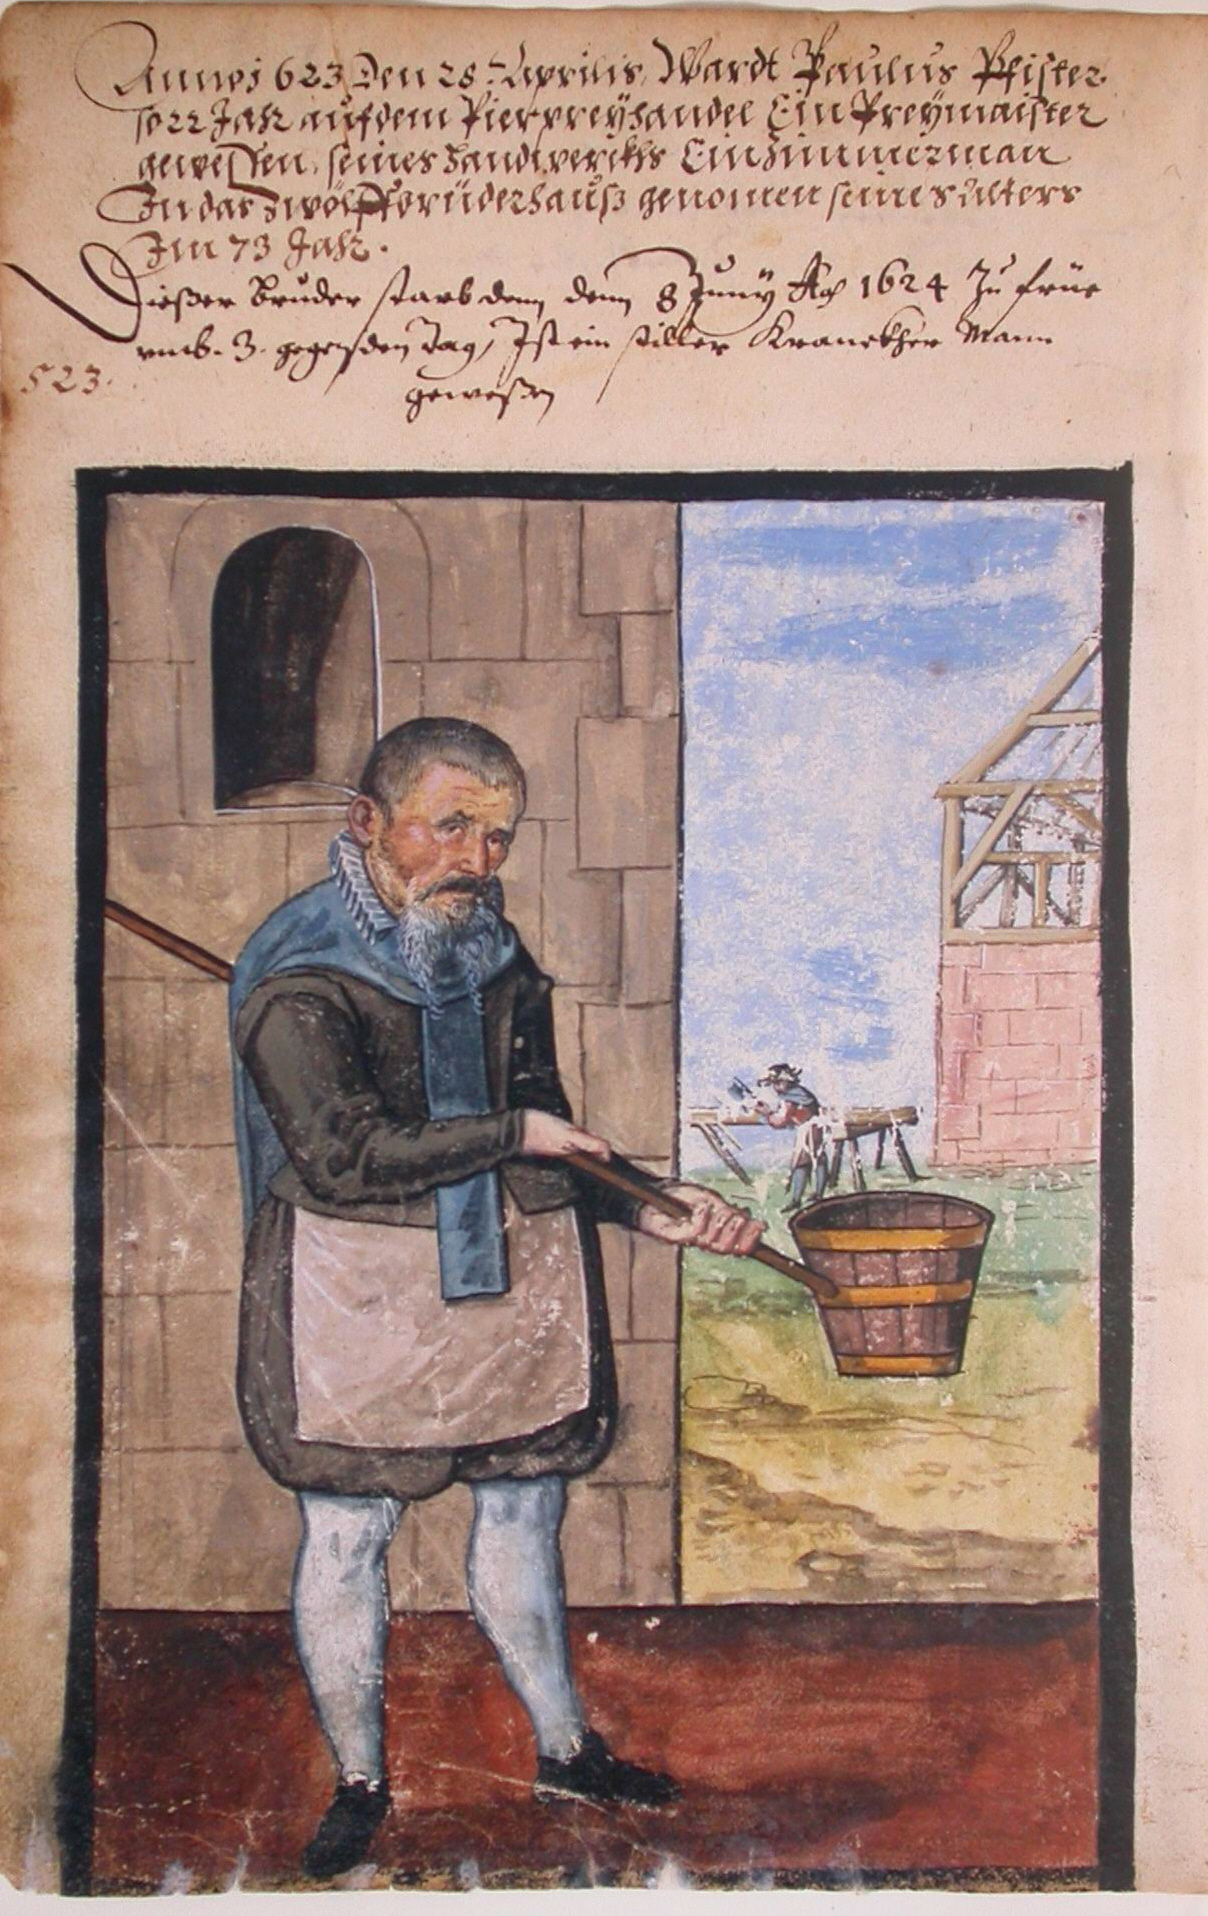 Anno 1623 Den 28 Aprilis, Wardt Paulus Pfister
so 22 Jahr auf dem Pierpreyhandel Ein Preymaister
gewessen, seines handwerckhs Ein Zimmerman
In das Zwölfbrüderhauß genomen seines Alters
Im 73 Jahr.
Dießer Bruder starb denn 8 Juny 1624 Zu früe
vmb. 3. gegen den Tag, Ist ein stiller Kranckher Mann
geweßen
523.